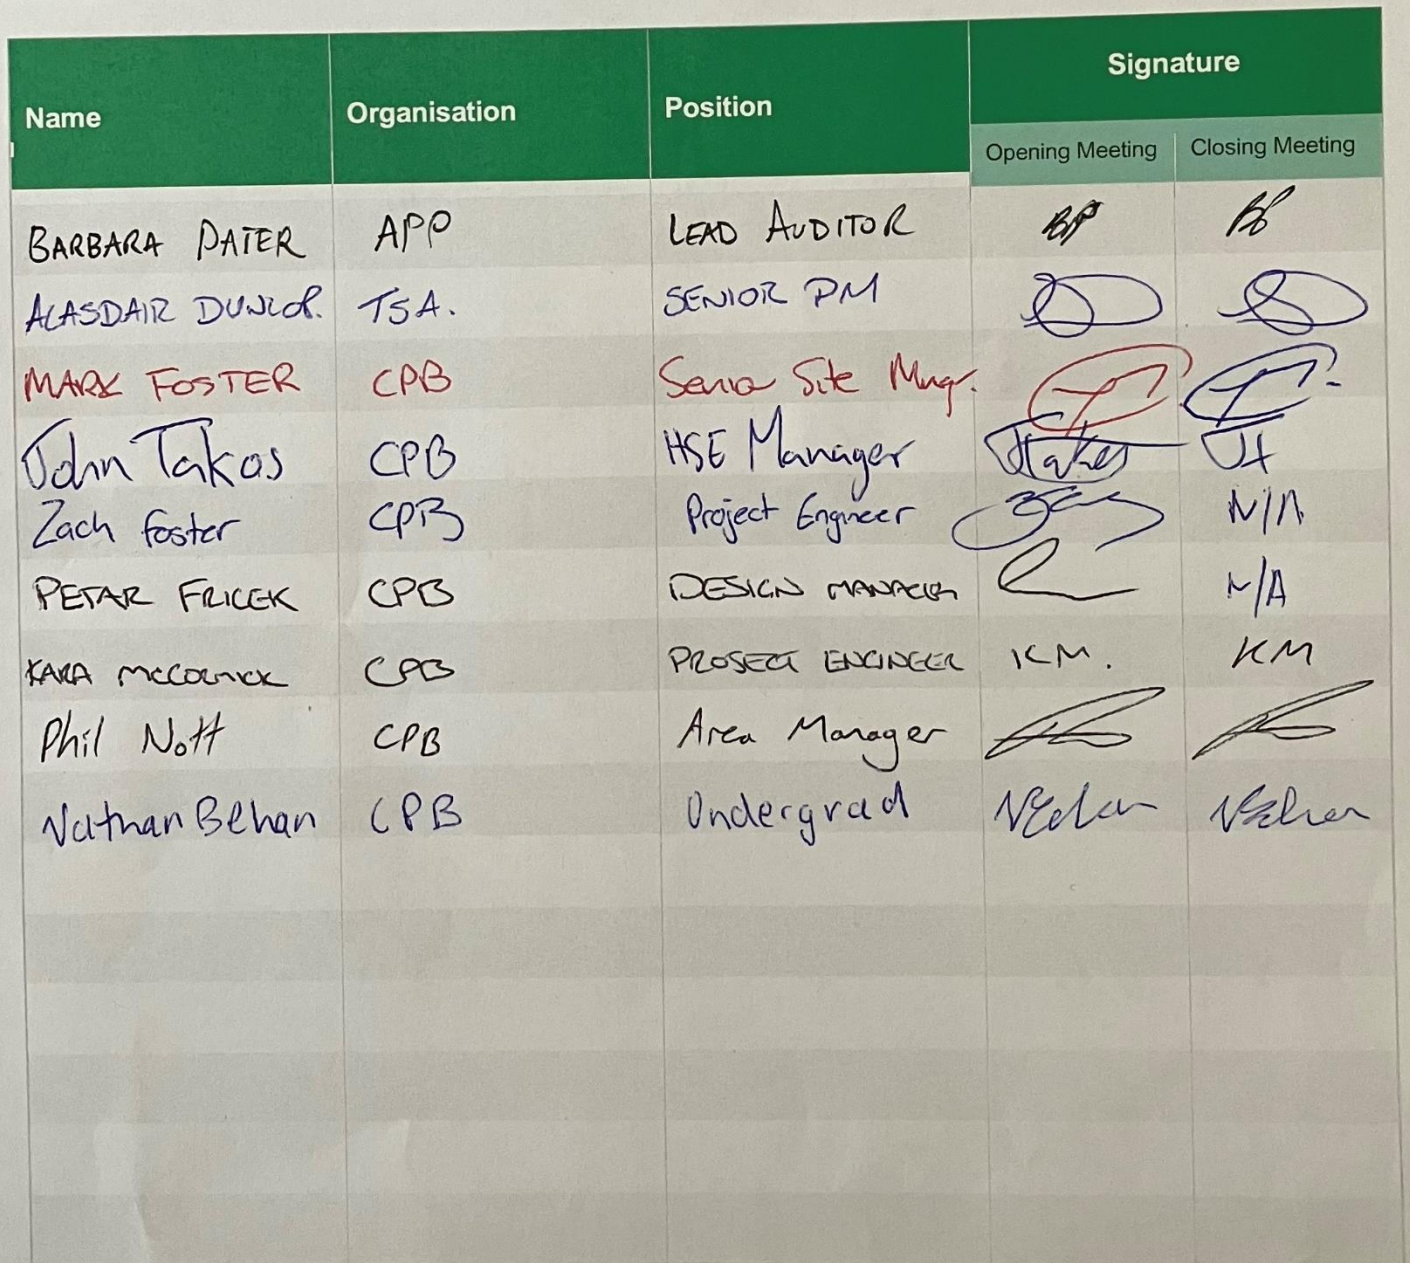 Signature
Name Organisation Position
Opening Meeting Closing Meeting
BARBARA PATER APP LEAD AUDITOR BP BP
ALASDAIR DUNLOP. TSA. SENIOR PM
MARK FOSTER CPB Senior Site Mngr.
John Takos CPB HSE Manager JTakos JT
Zach foster CPB Project Engineer N/A
PETAR FRICEK CPB DESIGN MANAGER N/A
KARA MCCORMICK CPB PROJECT ENGINEER KM. KM
Phil Nott CPB Area Manager
Nathan Behan CPB Undergrad NBehan NBehan